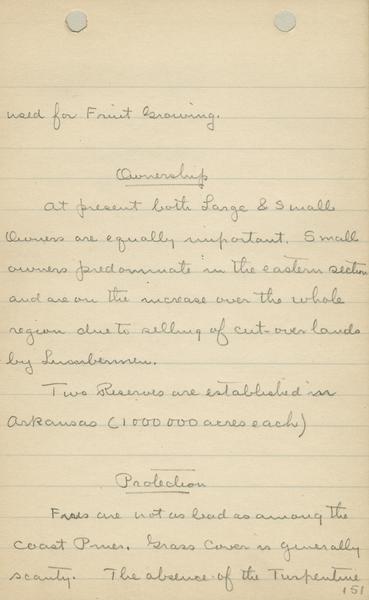 used for Fruit Growing.
Ownership
At present both Large & Small
Owners are equally important. Small
owners predominate in the eastern section
and are on the increase over the whole
region due to selling of cut-over lands
by Lumbermen.
Two Reserves are established in
Arkansas (1000000 acres each)
Protection
Fires are not as bad as among the
Coast Pines. Grass Cover is generally
scanty. The absence of the Turpentine
151